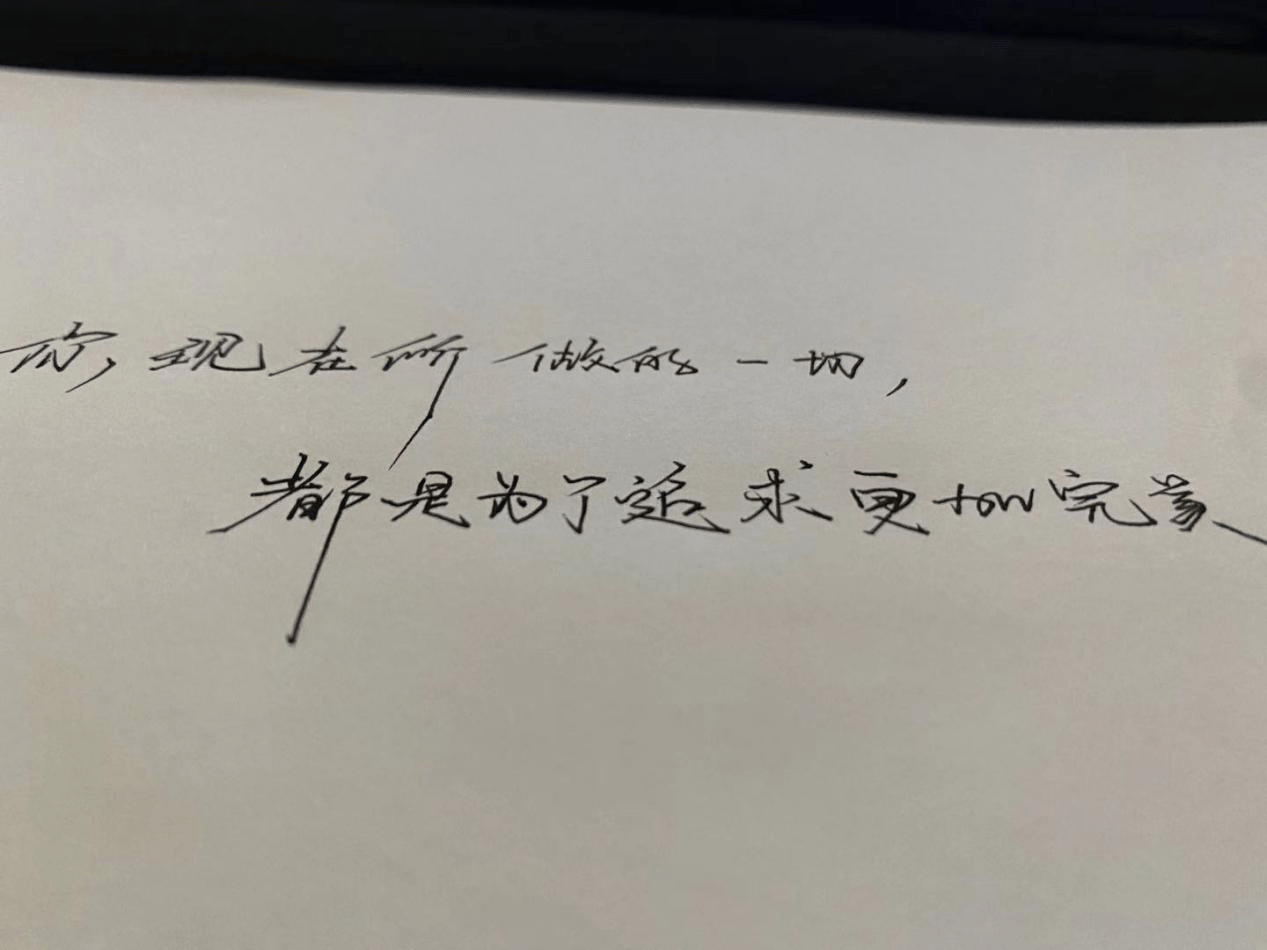 你,现在所做的一切,
都是为了追求更加完美